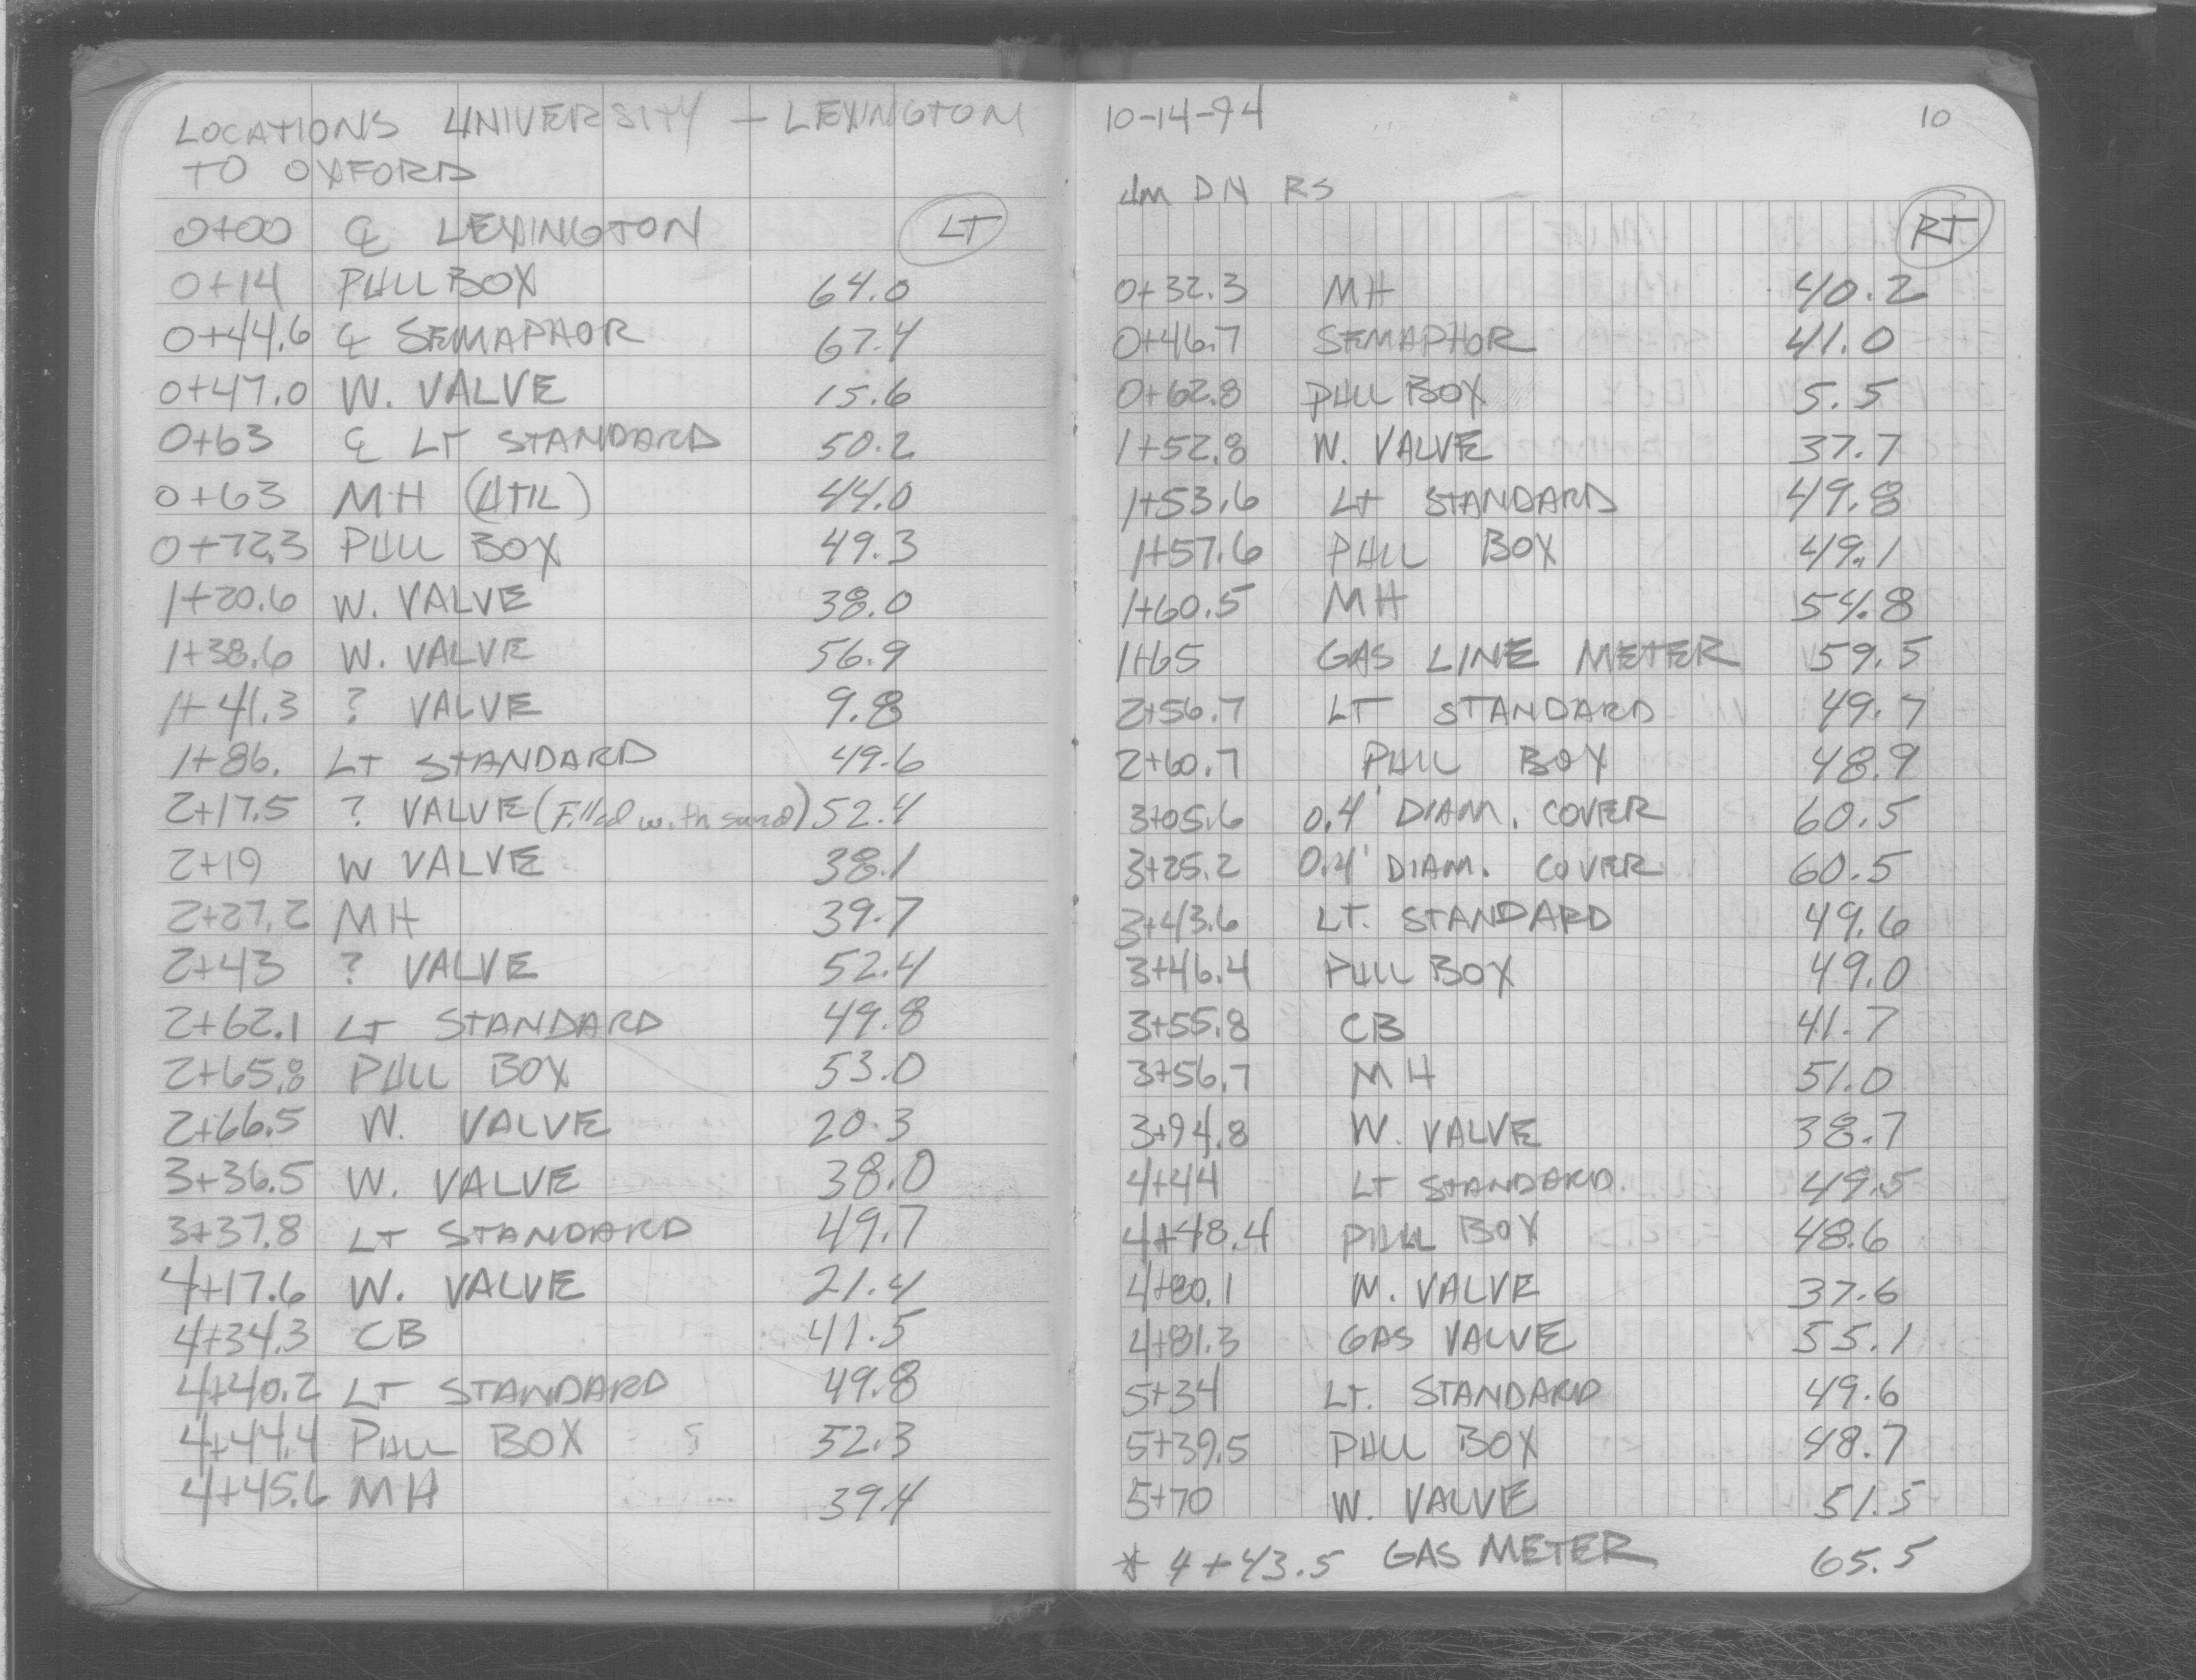 LOCATIONS UNIVERSITY - LEXINGTON
TO OXFORD
0+00 ℄ LEXINGTON LT
0+14 PULL BOX 64.0
0+44.6 ℄ SEMAPHOR 67.4
0+47.0 W. VALVE 15.6
0+63 ℄ LT STANDARD 50.2
0+63 MH (UTIL) 44.0
0+72.3 PULL BOX 49.3
1+20.6 W. VALVE 38.0
1+38.6 W. VALVE 56.9
1+41.3 ? VALVE 9.8
1+86. LT STANDARD 49.6
2+17.5 ? VALVE (Filled with sand) 52.4
2+19 W VALVE 38.1
2+27.2 MH 39.7
2+43 ? VALVE 52.4
2+62.1 LT STANDARD 49.8
2+65.8 PULL BOX 53.0
2+66.5 W. VALVE 20.3
3+36.5 W. VALVE 38.0
3+37.8 LT STANDARD 49.7
4+17.6 W. VALVE 21.4
4+34.3 CB 41.5
4+40.2 LT STANDARD 49.8
4+44.4 PULL BOX 52.3
4+45.6 MH 39.4
10-14-94 10
JM DN RS
RT
0+32.3 MH 40.2
0+46.7 SEMAPHOR 41.0
0+62.8 PULL BOX 5.5
1+52.8 W. VALVE 37.7
1+53.6 LT STANDARD 49.8
1+57.6 PULL BOX 49.1
1+60.5 MH 54.8
1+65 GAS LINE METER 59.5
2+56.7 LT STANDARD 49.7
2+60.7 PULL BOX 48.9
3+05.6 0.4' DIAM. COVER 60.5
3+25.2 0.4' DIAM. COVER 60.5
3+43.6 LT. STANDARD 49.6
3+46.4 PULL BOX 49.0
3+55.8 CB 41.7
3+56.7 MH 51.0
3+94.8 W. VALVE 38.7
4+44 LT STANDARD. 49.5
4+48.4 PULL BOX 48.6
4+80.1 W. VALVE 37.6
4+81.3 GAS VALVE 55.1
5+34 LT. STANDARD 49.6
5+39.5 PULL BOX 48.7
5+70 W. VALVE 51.5
* 4+43.5 GAS METER 65.5